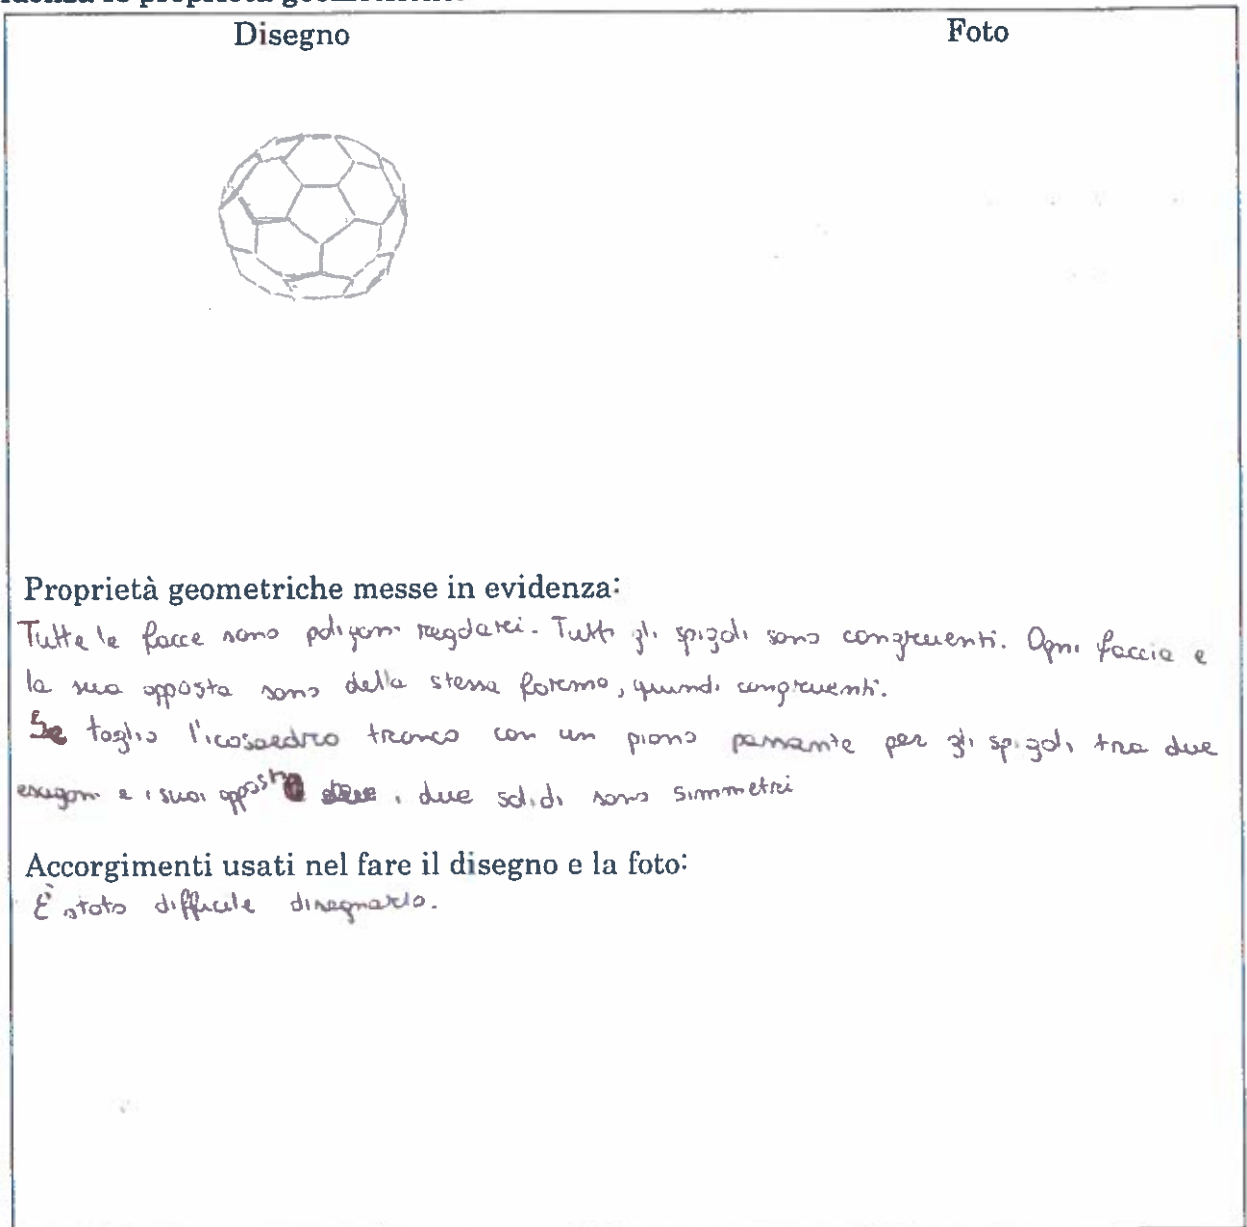 Disegno
Foto
Proprietà geometriche messe in evidenza:
Tutte le facce sono poligoni regolari. Tutti gli spigoli sono congruenti. Ogni faccia e
la sua opposta sono della stessa forma, quindi congruenti.
Se taglio l'icosaedro tronco con un piano passante per gli spigoli tra due
esagoni e i suoi opposti i due solidi sono simmetrici
Accorgimenti usati nel fare il disegno e la foto:
È stato difficile disegnarlo.